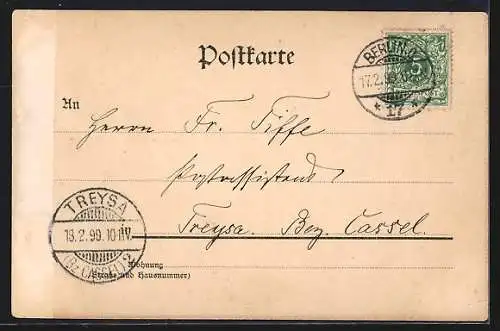 Postkarte
BERLIN
17.2.99.
* 17 *
5
An
Herrn Fr. Tiffe
Postassistent
Treysa. Bez. Cassel.
TREYSA
18.2.99.10-11V.
(Bz. CASSEL) 2
Wohnung
(Straße und Hausnummer)